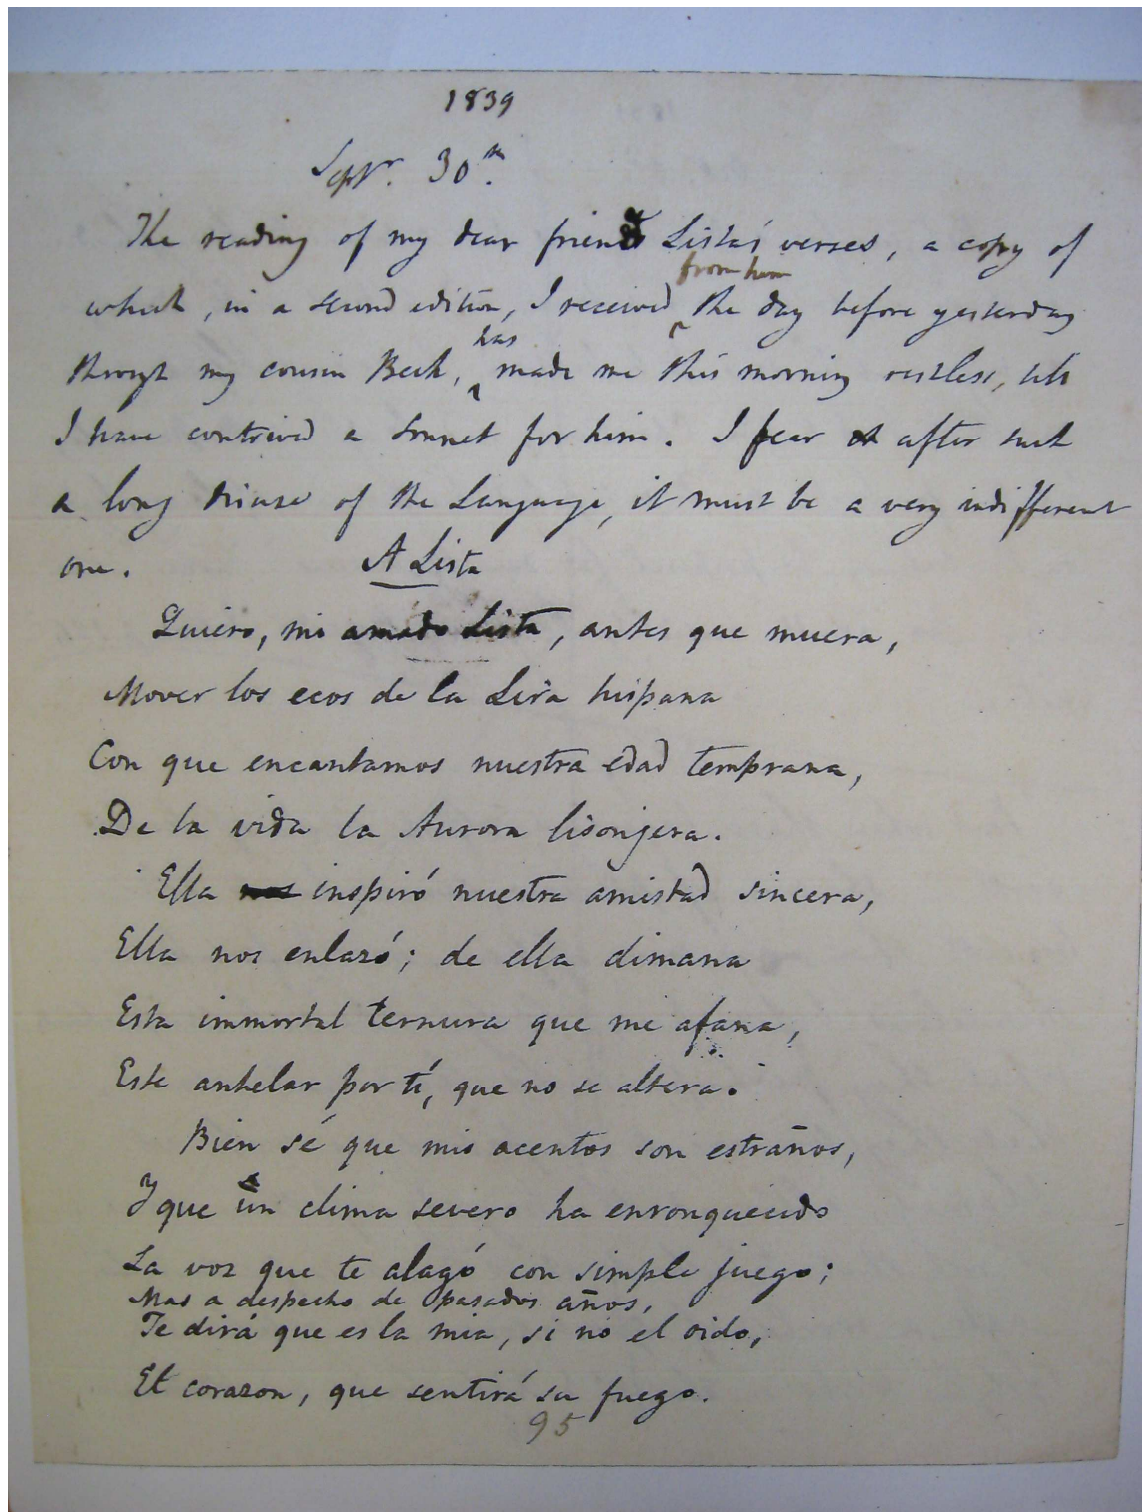 1839
Septr. 30th.
The reading of my dear friend Lista's verses, a copy of
which, in a second edition, I received from him the day before yesterday
through my cousin Beck, has made me this morning restless, till
I have contrived a sonnet for him. I fear after such
a long disuse of the Language, it must be a very indifferent
one.
A Lista
Quiero, mi amado Lista, antes que muera,
Mover los ecos de la Lira hispana
Con que encantamos nuestra edad temprana,
De la vida la Aurora lisonjera.
Ella nos inspiró nuestra amistad sincera,
Ella nos enlazó; de ella dimana
Esta immortal ternura que me afana,
Este anhelar por tí, que no se altera.
Bien sé que mis acentos son estraños,
Y que un clima severo ha enronquecido
La voz que te alagó con simple juego;
Mas a despecho de pasados años,
Te dirá que es la mia, si no el oido,
El corazon, que sentirá su fuego.
95